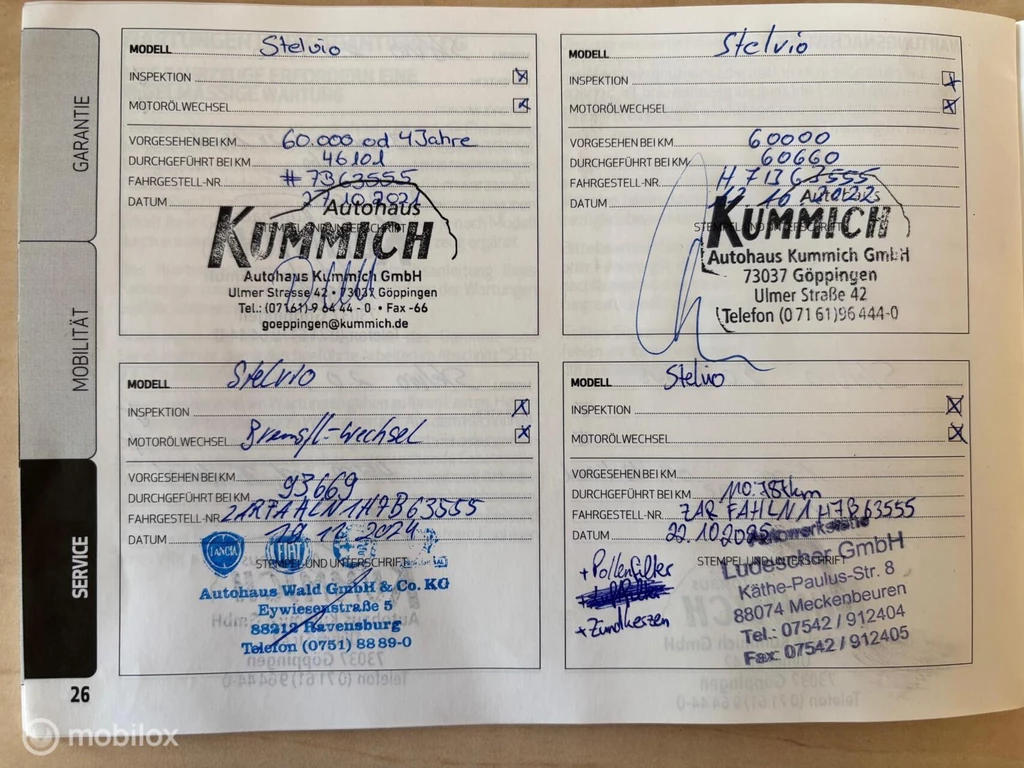 GARANTIE
MOBILITÄT
SERVICE
26
MODELL Stelvio
INSPEKTION
MOTORÖLWECHSEL
VORGESEHEN BEI KM 60.000 od 4 Jahre
DURCHGEFÜHRT BEI KM 46101
FAHRGESTELL-NR. # 7B63555
DATUM
Autohaus
KUMMICH
Autohaus Kummich GmbH
Ulmer Strasse 42 • 73037 Göppingen
Tel.: (07161)-9 64 44 - 0 • Fax -66
goeppingen@kummich.de
MODELL Stelvio
INSPEKTION
MOTORÖLWECHSEL
VORGESEHEN BEI KM 60000
DURCHGEFÜHRT BEI KM 60660
FAHRGESTELL-NR. H 7B63555
DATUM 12.10.2022
Autohaus
KUMMICH
Autohaus Kummich GmbH
73037 Göppingen
Ulmer Straße 42
Telefon (0 71 61) 96 444-0
MODELL Stelvio
INSPEKTION
MOTORÖLWECHSEL Bremsfl.-Wechsel
VORGESEHEN BEI KM
DURCHGEFÜHRT BEI KM 93669
FAHRGESTELL-NR. ZARFAHLN1H7B63555
DATUM 2024
LANCIA FIAT
STEMPEL UND UNTERSCHRIFT
Autohaus Wald GmbH & Co. KG
Eywiesenstraße 5
88212 Ravensburg
Telefon (0751) 88 89-0
MODELL Stelvio
INSPEKTION
MOTORÖLWECHSEL
VORGESEHEN BEI KM
DURCHGEFÜHRT BEI KM 110.787km
FAHRGESTELL-NR. ZARFAHLN1H7B63555
DATUM 22.10.2025
STEMPEL UND UNTERSCHRIFT
+ Pollenfilter
+ Zündkerzen
GmbH
Käthe-Paulus-Str. 8
88074 Meckenbeuren
Tel.: 07542 / 912404
Fax: 07542 / 912405
mobilox